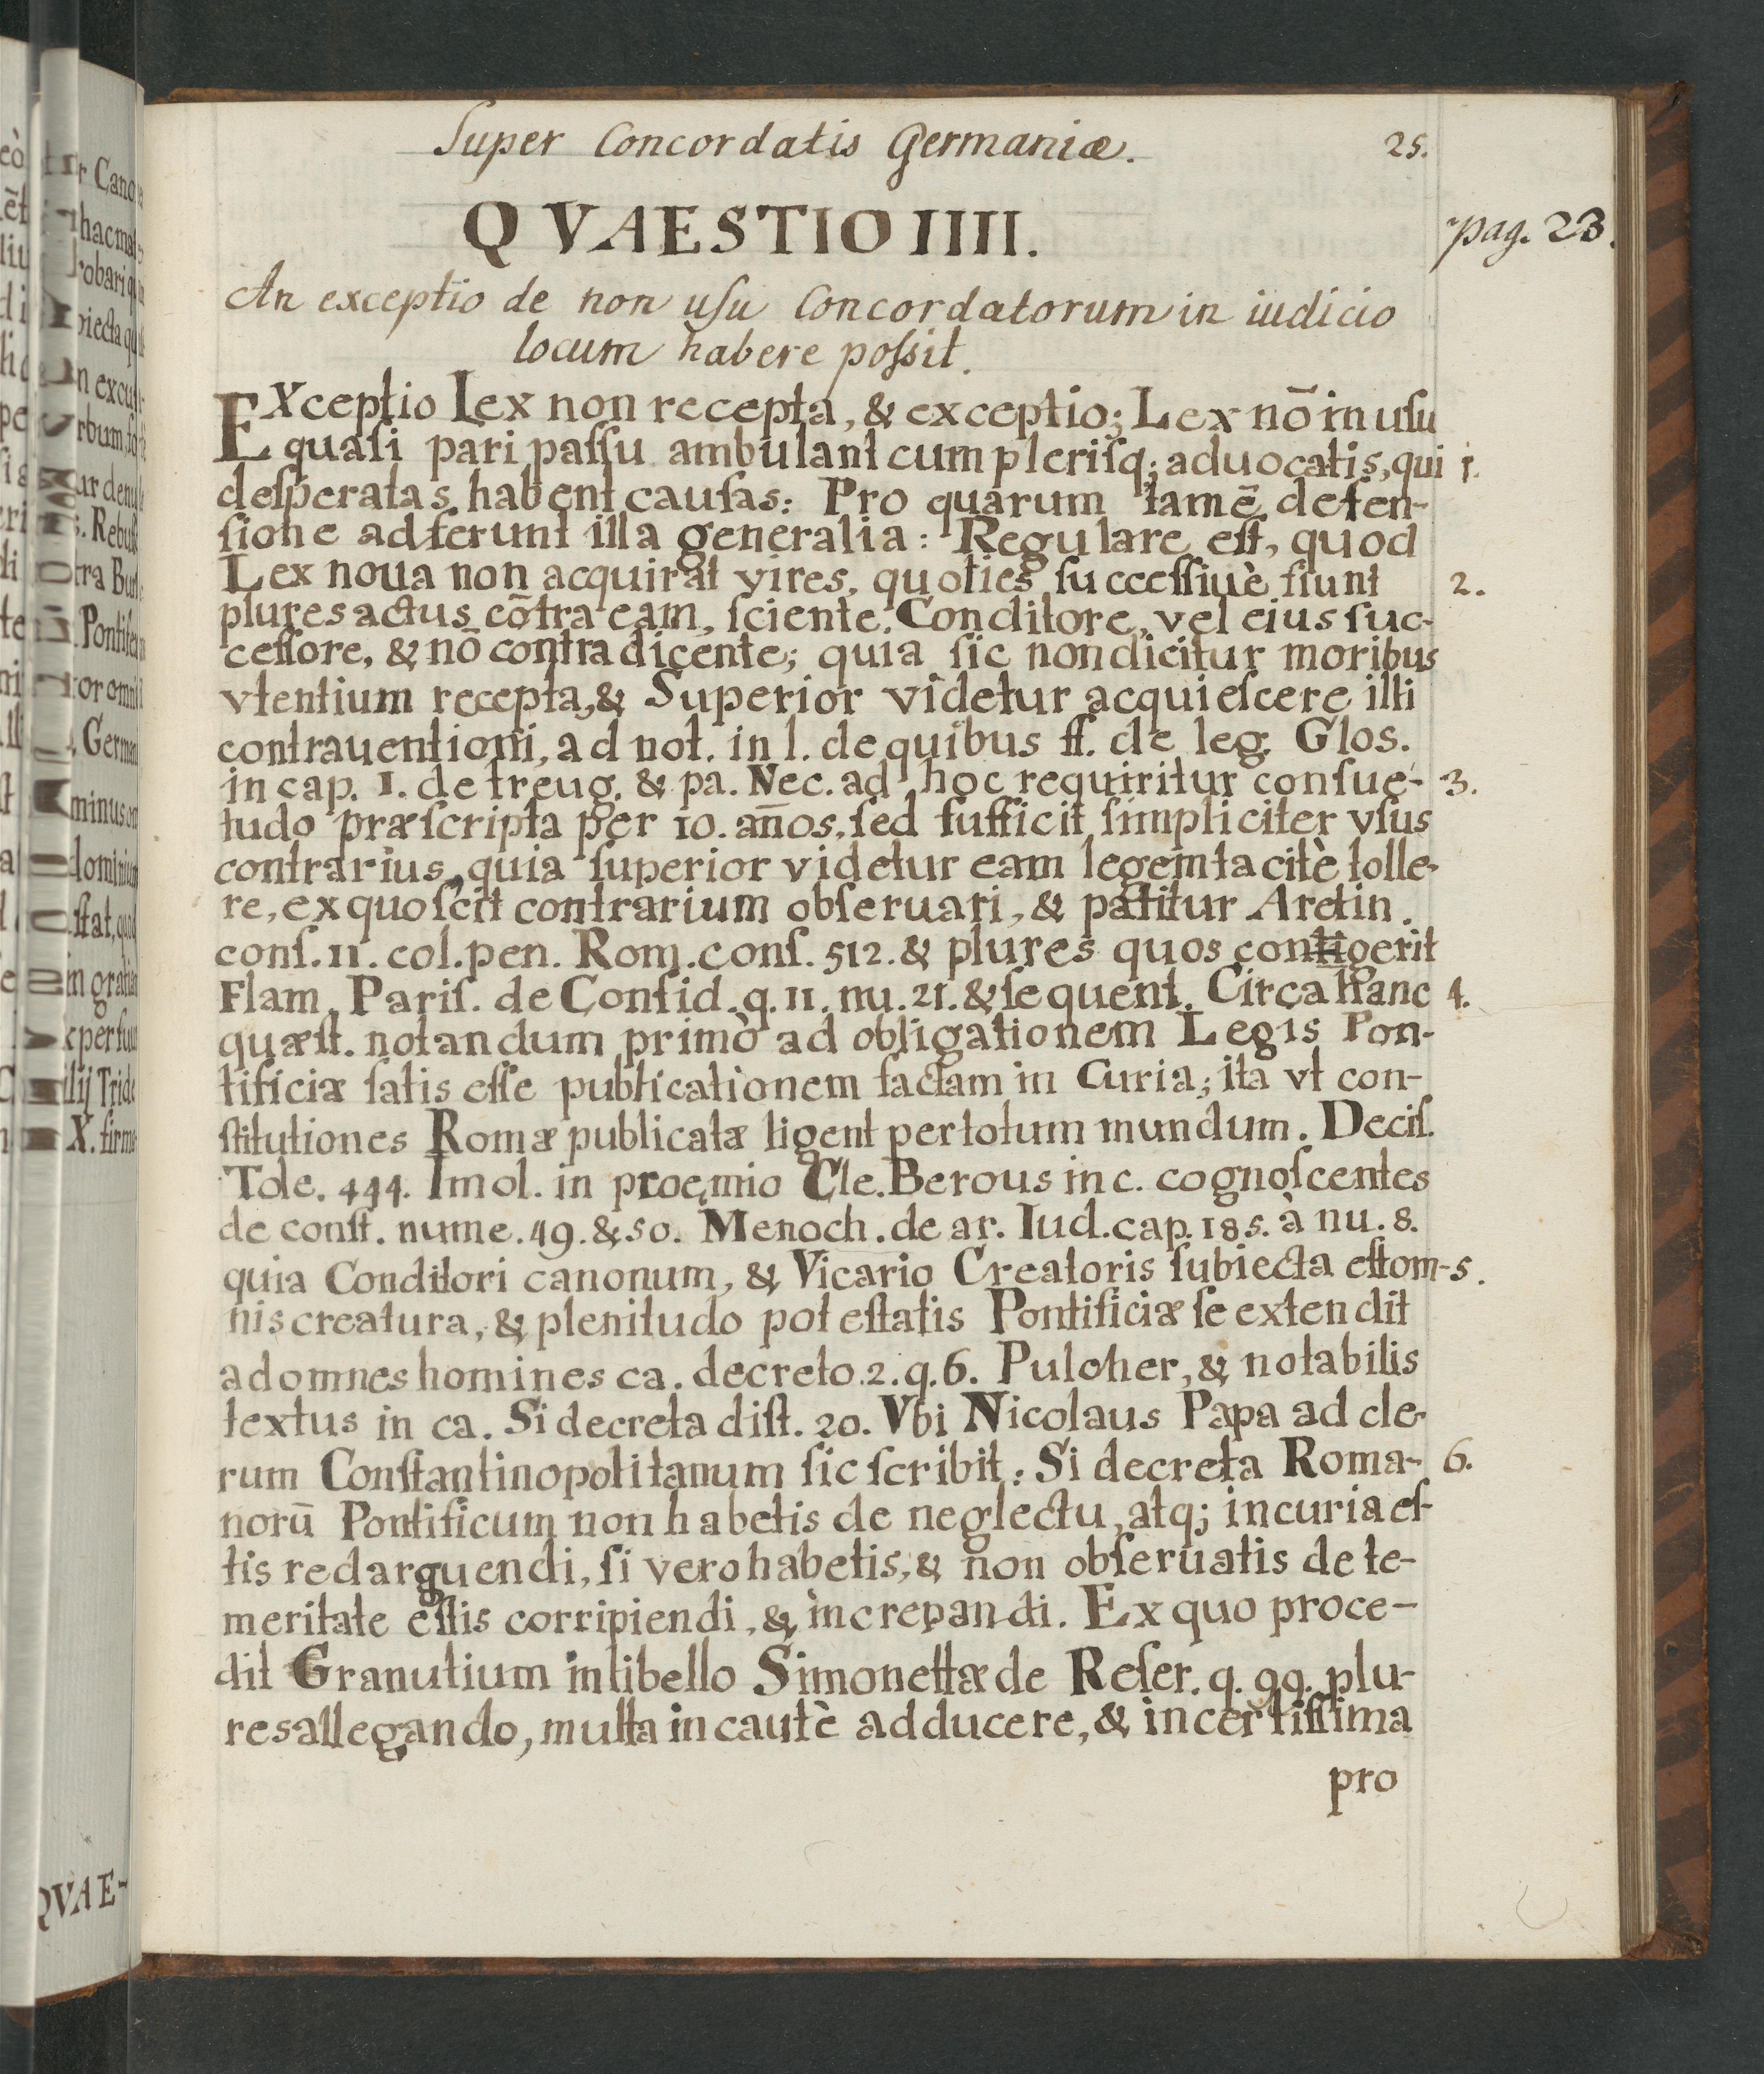 Super Concordatis Germaniæ. 25.
QVAESTIO IIII. pag. 23.
An exceptio de non uſu Concordatorum in iudicio
locum habere poſsit.
EXceptio Lex non recepta, & exceptio; Lex nō in uſu
quaſi pari paſſu ambulant cum pleriſq; aduocatis, qui 1.
deſperatas habent cauſas: Pro quarum tamē defen-
ſione adferunt illa generalia: Regulare eſt, quod
Lex noua non acquirat vires, quoties ſucceſſiuè fiunt 2.
plures actus cōtra eam, ſciente Conditore, vel eius ſuc-
ceſſore, & nō contradicente; quia ſic non dicitur moribus
vtentium recepta, & Superior videtur acquieſcere illi
contrauentioni, ad not. in l. de quibus ff. de leg. Glos.
in cap. 1. de treug. & pa. Nec. ad hoc requiritur conſue- 3.
tudo præſcripta per 10. an̄os, ſed ſufficit ſimpliciter vſus
contrarius, quia ſuperior videtur eam legem tacitè tolle-
re, ex quo ſcit contrarium obſeruari, & patitur Aretin.
conſ. 11. col. pen. Rom. conſ. 512. & plures quos contigerit
Flam. Pariſ. de Confid. q. 11. nu. 21. & ſequent. Circa hanc 4.
quæſt. notandum primò ad obligationem Legis Pon-
tificiæ ſatis eſſe publicationem factam in Curia; ita vt con-
ſtitutiones Romæ publicatæ ligent per totum mundum. Deciſ.
Tole. 444. Imol. in proęmio Cle. Berous in c. cognoſcentes
de conſt. nume. 49. & 50. Menoch. de ar. Iud. cap. 185. à nu. 8.
quia Conditori canonum, & Vicario Creatoris ſubiecta eſt om- 5.
nis creatura, & plenitudo poteſtatis Pontificiæ ſe extendit
ad omnes homines ca. decreto. 2. q. 6. Pulcher, & notabilis
textus in ca. Si decreta diſt. 20. Vbi Nicolaus Papa ad cle-
rum Conſtantinopolitanum ſic ſcribit: Si decreta Roma- 6.
norū Pontificum non habetis de neglectu, atq; incuria eſ-
tis redarguendi, ſi vero habetis, & non obſeruatis de te-
meritate eſtis corripiendi, & increpandi. Ex quo proce-
dit Granutium in libello Simonettæ de Reſer. q. 99. plu-
res allegando, multa incautè adducere, & incertiſſima
pro